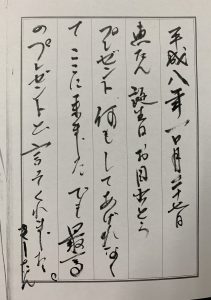 平成八年 一〇月二十七日
恵たん 誕生日お目出とう
プレゼント 何もしてあげれなく
て ここに来ました でも最高
のプレゼントと言ってくれました